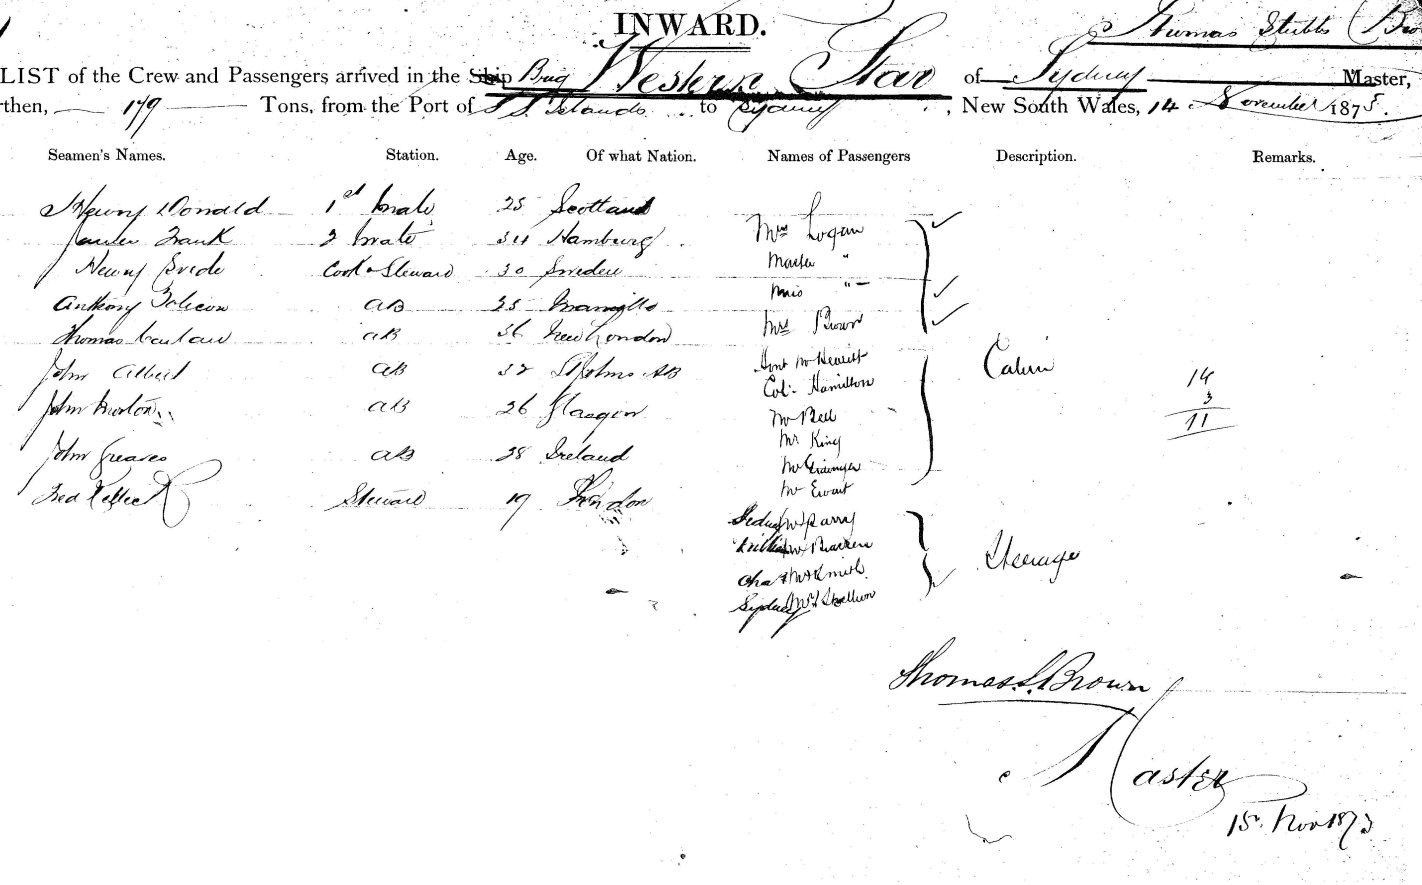 INWARD.
Thomas Stubbs Bro
LIST of the Crew and Passengers arrived in the Ship Brig Western Star of Sydney Master,
rthen, 179 Tons, from the Port of S. S. Islands to Sydney, New South Wales, 14 November 1875.
Seamen's Names. Station. Age. Of what Nation. Names of Passengers Description. Remarks.
Henry Donald 1st Mate 25 Scotland
Frank 2 Mate 34 Hamburg Mrs Logan
Henry Cook & Steward 30 Sweden Master "
Anthony AB 25 Manilla Miss "
Thomas AB 36 New London Mrs Brown
John Albert AB 32 St Johns NB Mr Hewitt Cabin
Col. Hamilton 14
John Morton AB 26 Glasgow Mr Bell 3
Mr King 11
John Greaves AB 28 Ireland Mr
Fred Steward 19 London Mr Ewart
Parry
Steerage
Chas Smith
Sydney
Thomas S. Brown
Master
15 Nov 1875